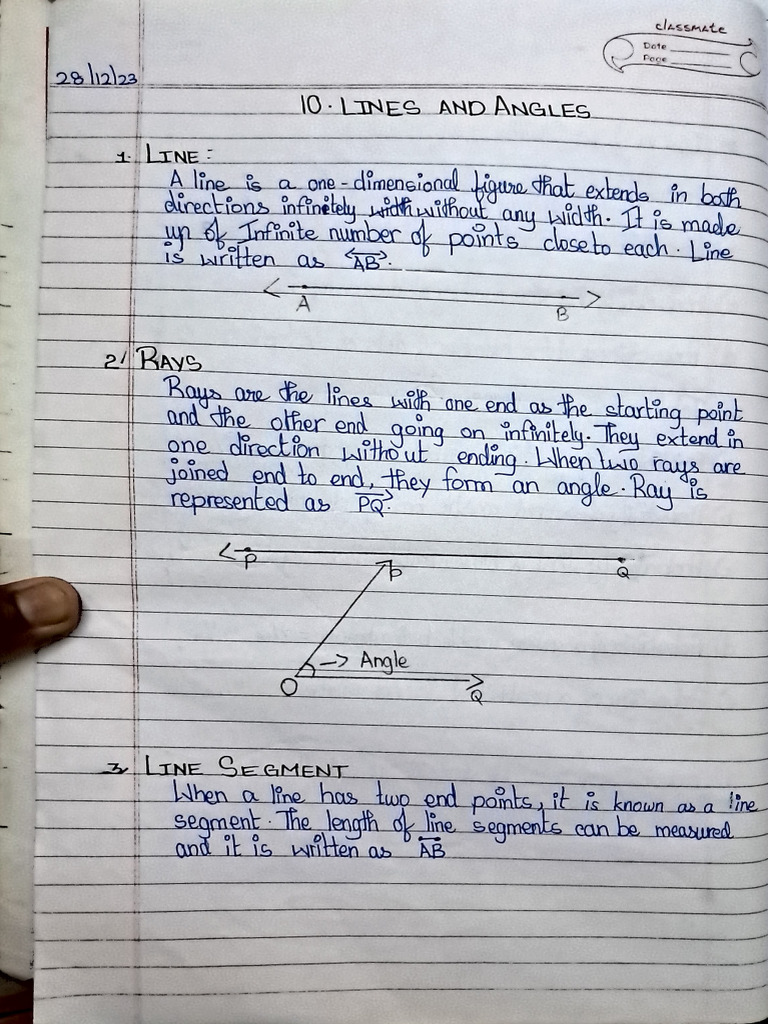 classmate
Date
Page
28/12/23
10. LINES AND ANGLES
1. LINE :
A line is a one-dimensional figure that extends in both
directions infinitely width without any width. It is made
up of Infinite number of points close to each. Line
is written as AB.
A
B
2. RAYS
Rays are the lines with one end as the starting point
and the other end going on infinitely. They extend in
one direction without ending. When two rays are
joined end to end, they form an angle. Ray is
represented as PQ.
P
Q
P
→ Angle
O
Q
3. LINE SEGMENT
When a line has two end points, it is known as a line
segment. The length of line segments can be measured
and it is written as AB